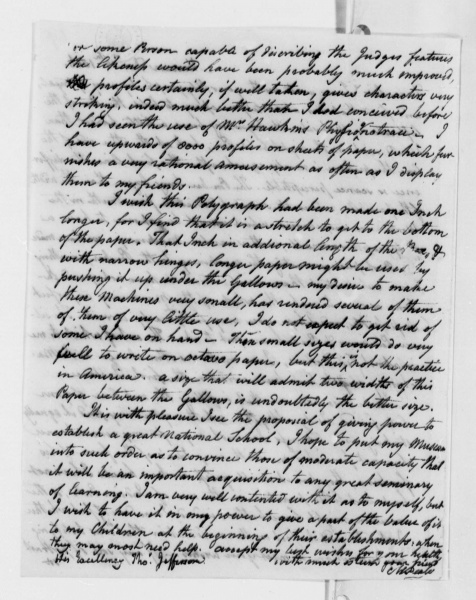 or some Person capable of discribing the Judges features
the likeness would have been probably much improved,
profiles certainly, if well taken, gives characters very
striking. indeed much better that I had conceived before
I had seen the use of Mr. Hawkins Physiognotrace — I
have upwards of 8000 profiles on sheets of paper, which fur-
nishes a very rational amusement as often as I display
them to my friends.
I wish this Polygraph had been made one Inch
longer, for I find that it is a stretch to get to the bottom
of the paper. That Inch in addional length of the Box, &
with narrow hinges, longer paper might be used by
pushing it up under the Gallows — my desire to make
these Machines very small, has rendred several of them
of them of very little use, I do not expect to get rid of
some I have on hand — Then small sizes would do very
well to wrote on octavo paper, but this, not the practice
in America. a size that will admit two widths of this
Paper between the Gallows, is undoubtedly the better size.
This with pleasure I see the proposal of giving power to
establish a great National School, I hope to put my Museum
into such order as to convince those of moderate capacity that
it will be an important acquisition to any great seminary
of learnong. I am very well contented with it as to myself, but
I wish to have it in my power to give a part of the Value of it
to my Children at the beginning of their establishments, when
they may most need help. accept my best wishes for your health,
with much esteem your friend
His Excellency Tho. Jefferson
CWPeale